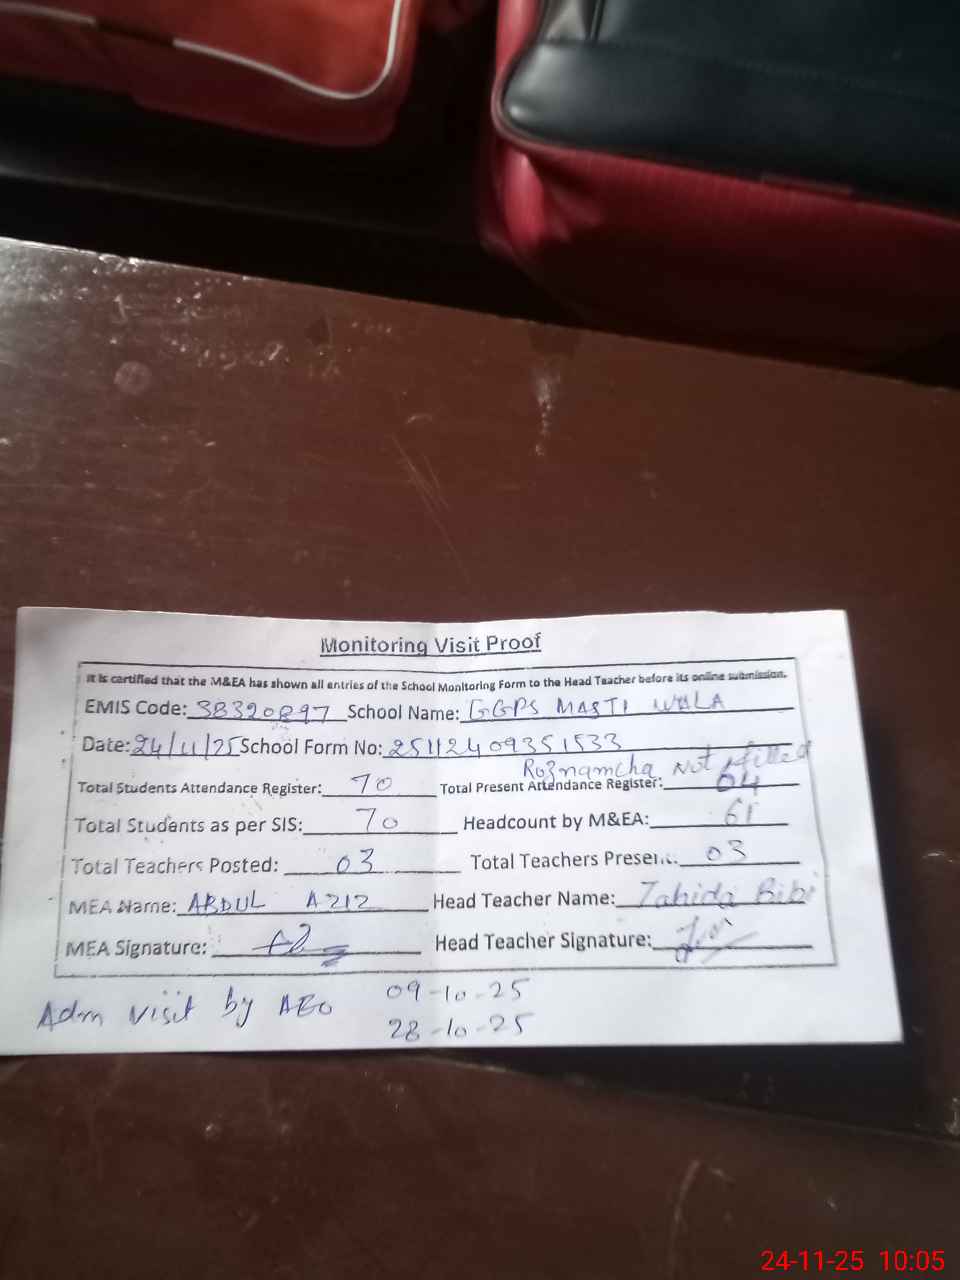 Monitoring Visit Proof
It is certified that the M&EA has shown all entries of the School Monitoring Form to the Head Teacher before its online submission.
EMIS Code: 38320897 School Name: GGPS MASTI WALA
Date: 24/11/25 School Form No: 25112409351533
Roznamcha Not filled
Total Students Attendance Register: 70 Total Present Attendance Register: 04
Total Students as per SIS: 70 Headcount by M&EA: 61
Total Teachers Posted: 03 Total Teachers Present: 03
MEA Name: ABDUL AZIZ Head Teacher Name: Zahida Bibi
MEA Signature: Head Teacher Signature:
Adm visit by AEO 09-10-25
28-10-25
24-11-25 10:05